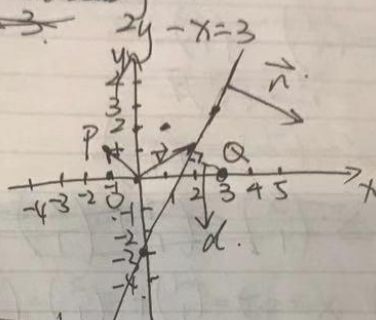 3
2y - x = 3
y
4
3
2
1
n
P
v
Q
-4 -3 -2 -1 0 1 2 3 4 5 x
-1
-2
-3
-4
d.